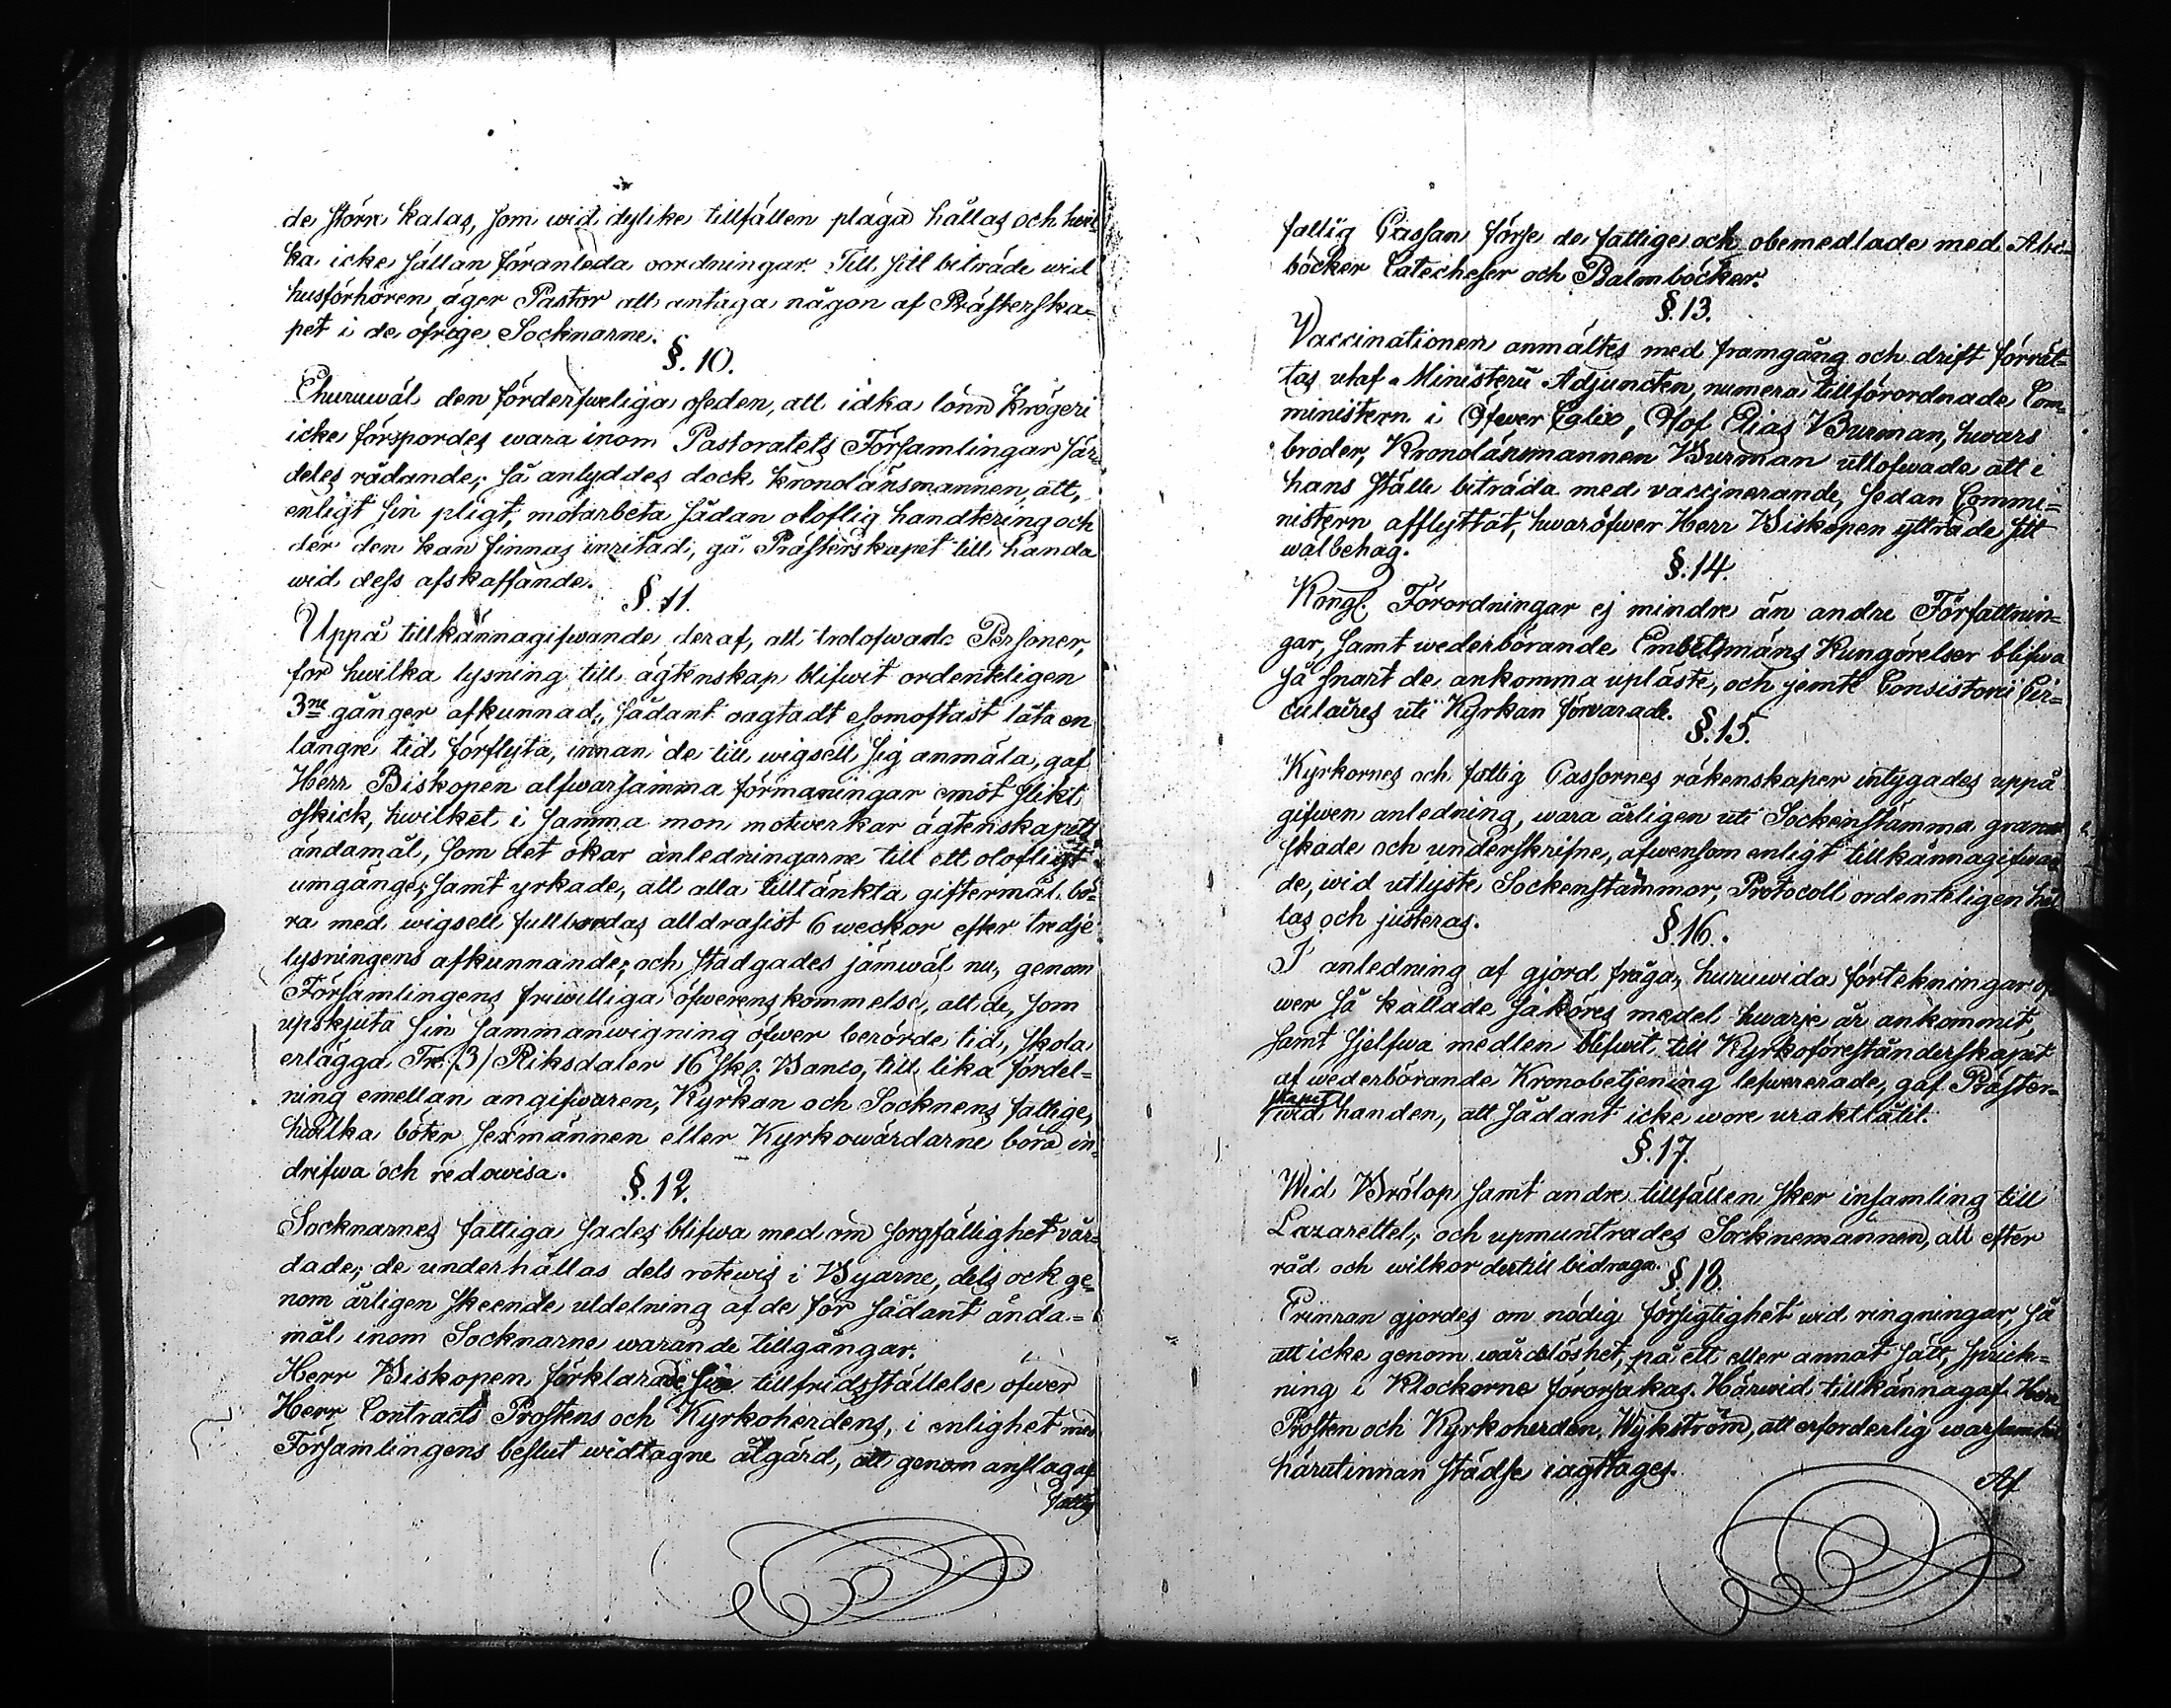 de större kalas, som wid dylike tillfällen pläga hållas och hwil-
ka icke sällan föranleda oordningar. Till sitt biträde wid
husförhören, äger Pastor att antaga någon af Prästerska-
pet i de öfrige Socknarne.
§. 10.
Ehuruwäl den förderfweliga oseden, att idka lönn Krögeri
icke förspordes wara inom Pastoratets Församlingar sär-
deles rådande, så antyddes dock kronolänsmannen, att,
enligt sin pligt, motarbeta sådan oloflig handtering och
der den kan finnas inritad, gå Prästerskapet till handa
wid dess afskaffande.
§. 11.
Uppå tillkännagifwande deraf, att trolofwade Personer,
for hwilka lysning till ägtenskap blifwit ordenteligen
3ne gånger afkunnad, sådant oagtadt esomoftast låta en
längre tid förflyta, innan de till wigsell sig anmäla, gaf
Herr Biskopen alfwarsamma förmaningar emot slikt
oskick, hwilket i samma mon motwerkar ägtenskapets
ändamål, som det ökar anledningarne till ett olofligt
umgänge; samt yrkade, att alla tilltänkta giftermål bö-
ra med wigsell fullbordas alldrasist 6 weckor efter tredje
lysningens afkunnande; och stadgades jämwäl nu, genom
Församlingens friwilliga öfwerenskommelse, att de, som
upskjuta sin sammanwigning öfwer berörde tid, skola
erlägga Tre /3/ Riksdaler 16 skl. Banco, till lika fördel-
ning emellan angifwaren, Kyrkan och Socknens fattige,
hwilka böter sexmännen eller Kyrkowärdarne böra in-
drifwa och redowisa.
§. 12.
Socknarnes fattiga sades blifwa med öm sorgfällighet vår-
dade; de underhållas dels rotewis i Byarne, dels ock ge-
nom årligen skeende utdelning af de för sådant ända-
mål inom Socknarne warande tillgångar.
Herr Biskopen förklarade sin tillfridsställelse öfwer
Herr Contracts Prostens och Kyrkoherdens, i enlighet med
Församlingens beslut widtagne åtgärd, att genom anslag af
fattig
fattig Cassan förse de fattige och obemedlade med Abc-
böcker Catecheser och Psalmböcker.
§. 13.
Vaccinationen anmältes med framgång och drift förrät-
tas utaf Ministerii Adjuncten, numera tillförordnade Com-
ministern i Öfwer Calix, Olof Elias Burman, hwars
broder, Kronolänsmannen Burman utlofwade att i
hans ställe biträda med vaccinerande, sedan Commi-
nistern afflyttat, hwaröfwer Herr Biskopen yttrade sitt
wälbehag.
§. 14.
Kongl. Förordningar ej mindre än andre Författnin-
gar, samt wederbörande Embetsmäns Kungörelser blifwa
så snart de ankomma upläste, och jemte Consistorii Cir-
culairer uti Kyrkan förwarade.
§. 15.
Kyrkornes och fattig Cassornes räkenskaper intygades uppå
gifwen anledning, wara årligen uti Sockenstämma gran-
skade och underskrifne, äfwensom enligt tillkännagifwan-
de, wid utlyste Sockenstämmor, Protocoll ordenteligen hål-
las och justeras.
§. 16.
I anledning af gjord fråga, huruwida förtekningar öf-
wer så kallade Saköres medel hwarje år ankommit,
samt sjelfwa medlen blifwit till Kyrkoföreståndarskapet
af wederbörande Kronobetjening lefwererade, gaf Präster-
skapet
wid handen, att sådant icke wore uraktlåtit.
§. 17.
Wid Brölop samt andre tillfällen sker insamling till
Lazarettet, och upmuntrades Socknemännen, att efter
råd och wilkor dertill bidraga.
§. 18.
Erinran gjordes om nödig försigtighet wid ringningar, så
att icke genom wårdslöshet, på ett eller annat sätt, sprick-
ning i Klockorne förorsakas. Härwid tillkännagaf Herr
Prosten och Kyrkoherden Wykström, att erforderlig warsamhet
härutinnan städse iagttages.
Af